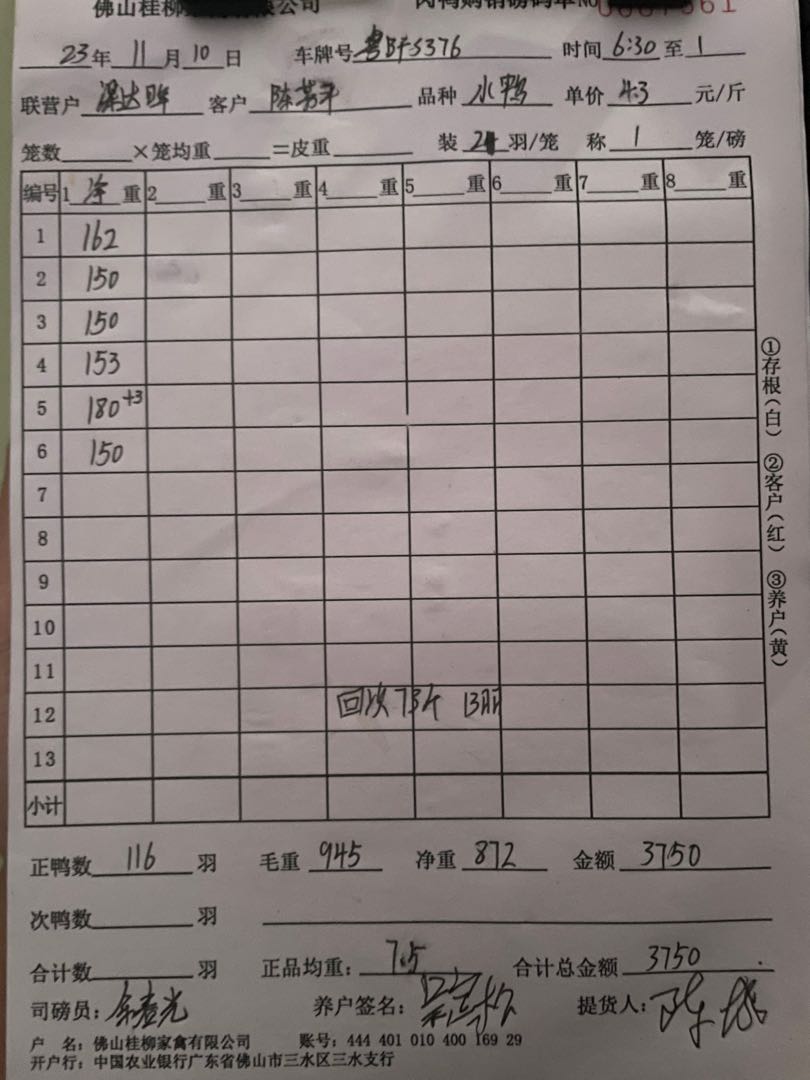 佛山桂柳家禽有限公司 肉鸭购销磅码单No 0007561
23年 11月10日 车牌号 粤BFS376 时间 6:30至 1
联营户 客户 陈芳平 品种 水鸭 单价 4.3 元/斤
笼数 ×笼均重 =皮重 装 羽/笼 称 1 笼/磅
编号 1 净 重 2 重 3 重 4 重 5 重 6 重 7 重 8 重
1 162
2 150
3 150
4 153
5 180+3
6 150
7
8
9
10
11
12 回次 73斤 13羽
13
小计
正鸭数 116 羽 毛重 945 净重 872 金额 3750
次鸭数 羽
合计数 羽 正品均重: 7.5 合计总金额 3750
司磅员: 养户签名: 提货人:
户 名: 佛山桂柳家禽有限公司 账号: 444 401 010 400 169 29
开户行: 中国农业银行广东省佛山市三水区三水支行
①存根(白) ②客户(红) ③养户(黄)